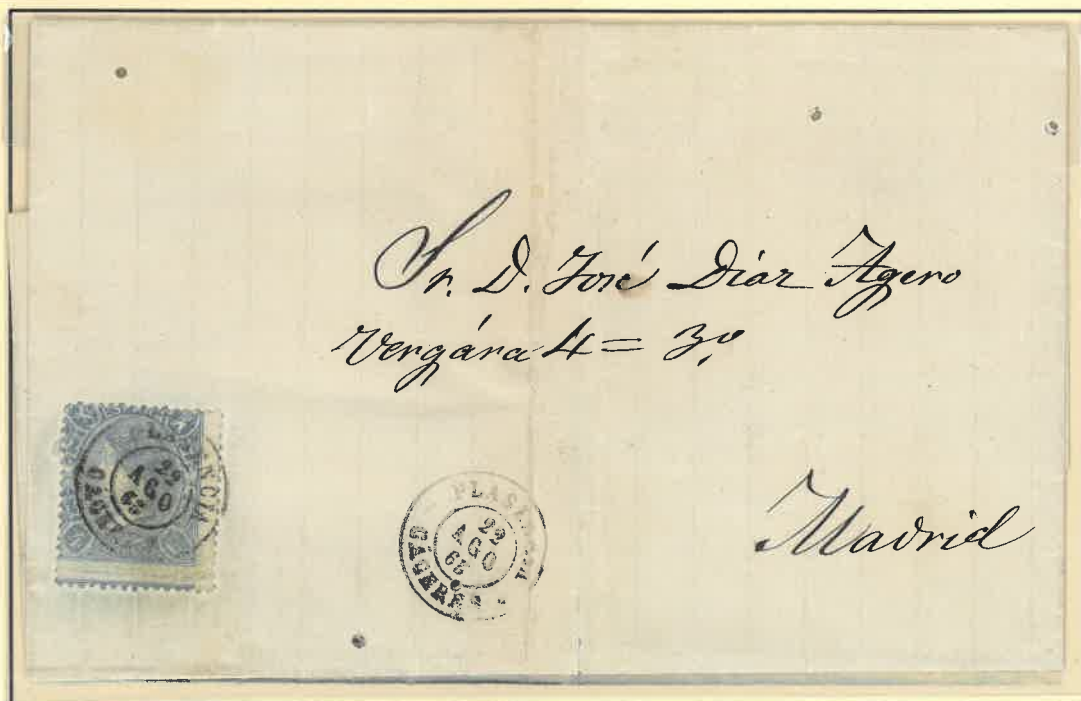 Sr. D. José Diaz Agero
Vergára 4 = 3º
Madrid
PLASENCIA
22
AGO
65
CÁCERES
PLASENCIA
29
AGO
65
CÁCERES